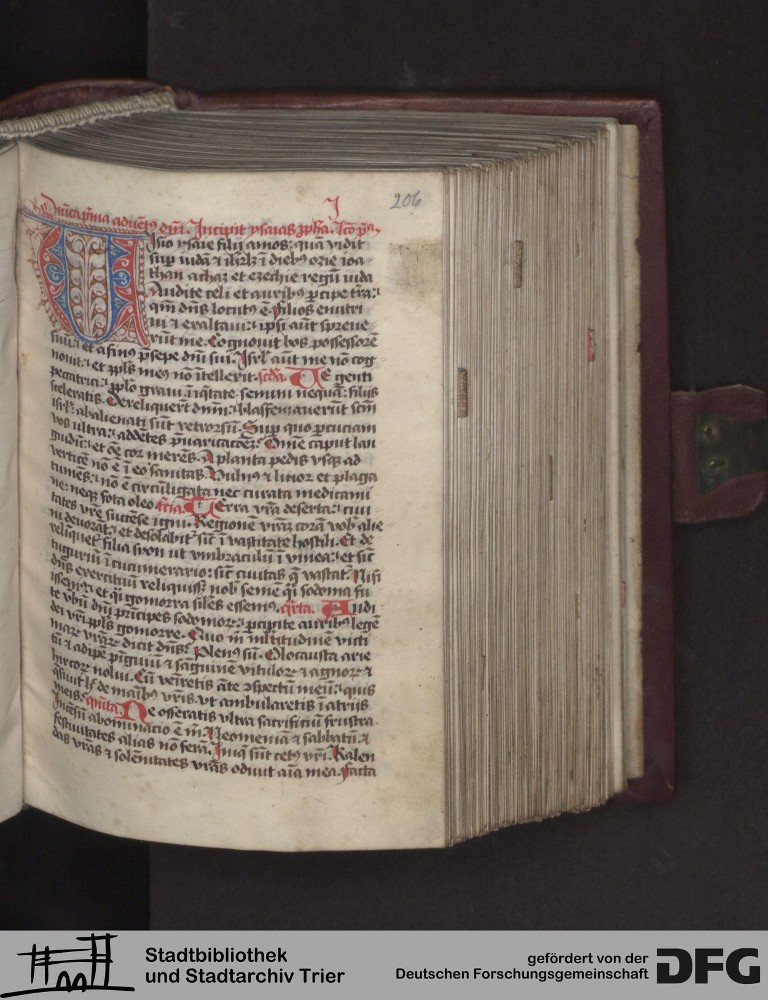 J
206
Dn̄ica p̄ma advēt9 dn̄i. Incipit ysaias ꝓph̄a. Lc̄o p̄a
Visio ysaie filij amos: quā vidit
sup iudā et ih̄rl̄m ī dieb9 ozie ioa
than achaz et ezechie regū iuda
Audite celi et aurib9 ꝑcipe t̄ra:
qm̄ dn̄s locut9 ē. filios enutri
ui et exaltaui: ip̄i aūt spreue
rūt me. Cognouit bos possessorē
suū: et asin9 p̄sepe dn̄i sui. Isr̄l aūt me nō cog
nouit: et ppl̄s me9 nō ītellexit. sc̄da. Ve genti
peccatrici: pplo graui īiq̄tate semini nequā: filijs
sceleratis. Dereliquerūt dnm̄: blasfemauerūt sc̄m
isr̄l: abalienati sūt retrorsū. Sup quo ꝑcuciam
vos ultra: addētes p̄uaricacōēꝫ. Om̄e caput lan
guidū: et oē cor merēs. A planta pedis vsqꝫ ad
verticē nō ē ī eo sanitas. Vuln9 et liuor et plaga
tumēs: nō ē circūligata nec curata medicami
ne: neqꝫ fota oleo t̄cia. Terra vr̄a deserta: ciui
tates vr̄e succēse igni. Regionē vr̄aꝫ corā vob̄ alie
ni deuorāt: et desolabit̄ sic̄ ī vastitate hostili. Et de
relinquet̄ filia syon ut vmbraculū ī vinea: et sic̄
tuguriū ī cucumerario: sic̄ ciuitas q̄ vastat̄. Nisi
dn̄s exercituū reliquiss̄ nob̄ semē q̄si sodoma fu
issem9: et q̄si gomorra siles essem9. q̄rta. Audi
te vbū dn̄i prīcipes sodomoꝝ: ꝑcipite aurib9 legē
dei vr̄i ppl̄s gomorre. Quo m̄ ml̄titudinē victi
maꝝ vr̄aꝝ dicit dn̄s: Plen9 sū. Olocausta arie
tū et adipē pīguiū et sāguinē vituloꝝ et agnoꝝ et
hircoꝝ nolui. Cū veīretis āte ɔspectū meū: quis
q̄siuit h̄ de manib9 vr̄is. vt ambularetis ī atrijs
meis. quīta. Ne offeratis vltra sacrificiū frustra.
Incēsū abominacio ē m̄. Neomeniā et sabbatū et
festiuitates alias nō ferā. Iniq̄ sūt cet9 vr̄i. Kalen
das vr̄as et solēnitates vr̄as odiuit aīa mea. Facta
Stadtbibliothek
und Stadtarchiv Trier
gefördert von der
Deutschen Forschungsgemeinschaft
DFG